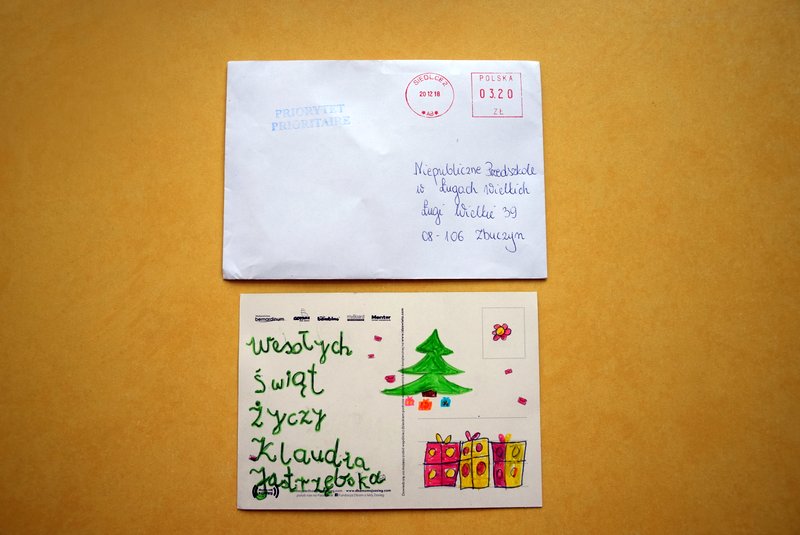 SIEDLCE 2
20 12 18
POLSKA
03.20
ZŁ
PRIORYTET
PRIORITAIRE
Niepubliczne Przedszkole
w Ługach Wielkich
Ługi Wielkie 39
08-106 Zbuczyn
bernardinum
bambino
Mentor
Wesołych
Świąt
Życzy
Klaudia
Jastrzębska